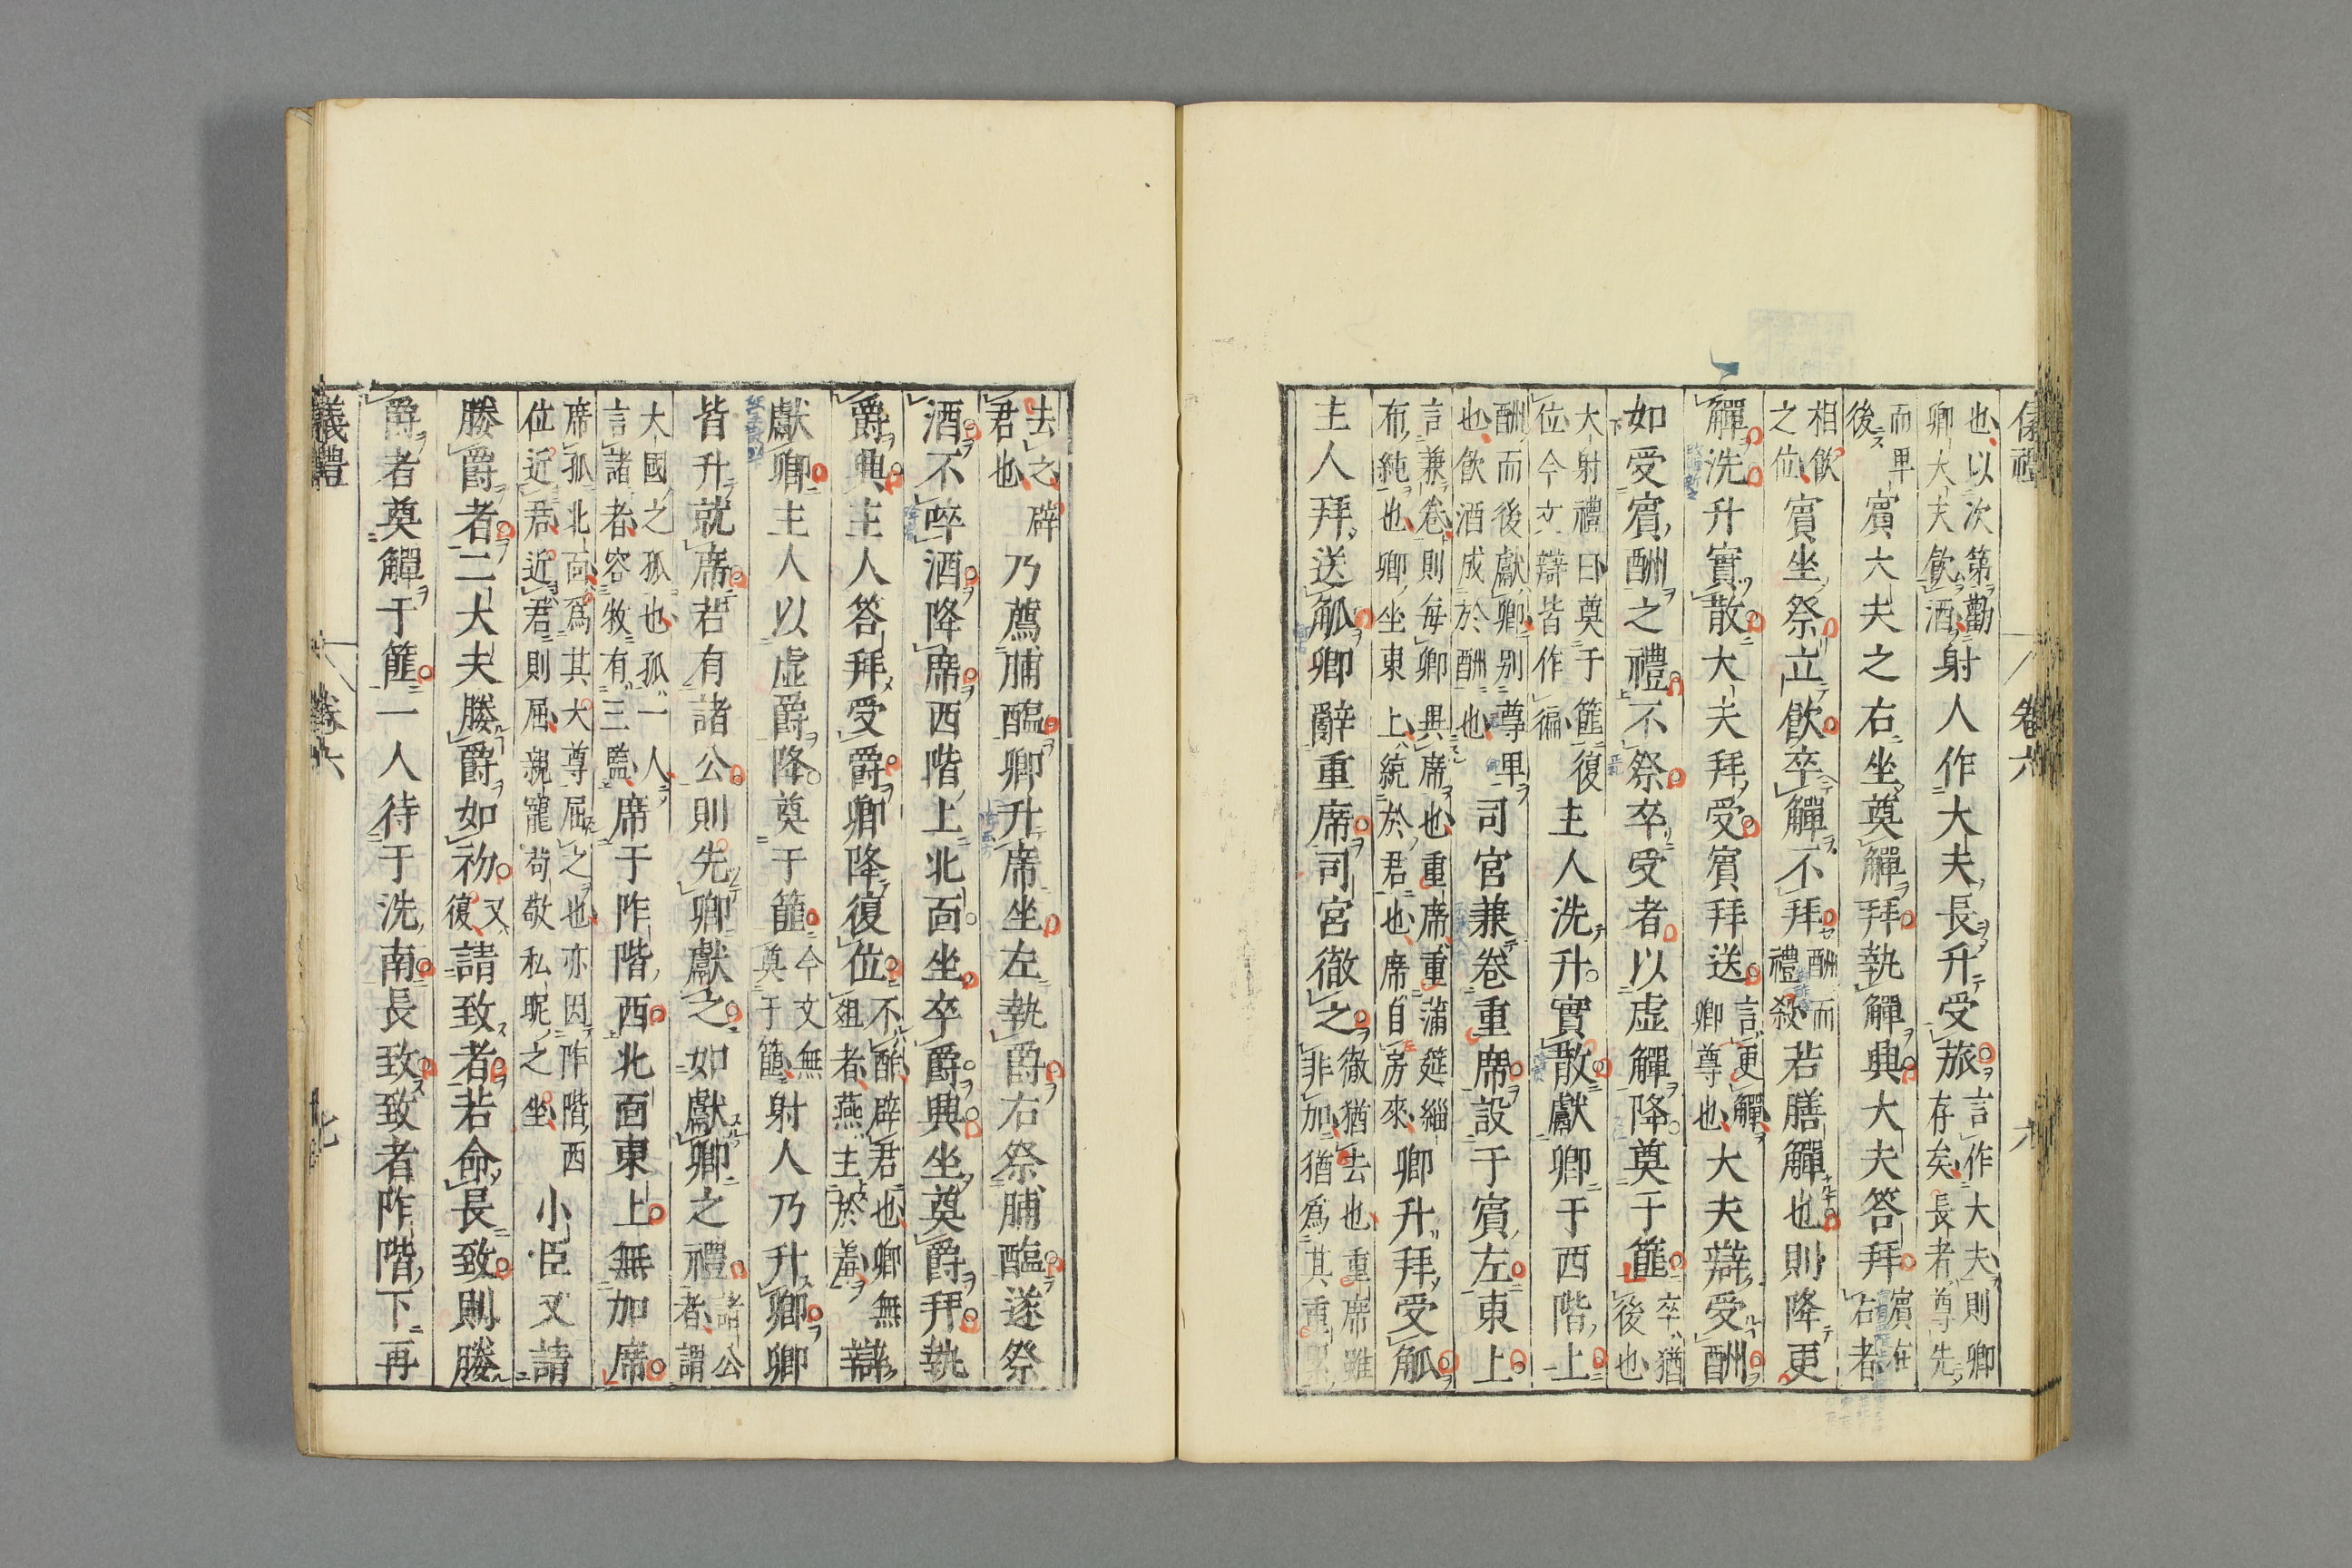 儀禮 卷六 六
也以次第勸卿大夫飲酒射人作大夫長升受旅言作大夫則卿存矣長者尊先
而卑後賓大夫之右坐奠觶拜執觶興大夫答拜賓在右者
相飲之位賓坐祭立飲卒觶不拜酬而禮殺若膳觶也則降更
觶洗升實散大夫拜受賓拜送言更觶卿尊也大夫辯受酬
如受賓酬之禮不祭卒受者以虛觶降奠于篚卒猶後也
大射禮曰奠于篚復位今文辯皆作徧主人洗升實散獻卿于西階上
酬而後獻卿別尊卑也飲酒成於酬也司宮兼卷重席設于賓左東上
言兼卷則每卿異席也重席重蒲筵緇布純也卿坐東上統於君也席自房來卿升拜受觚
主人拜送觚卿辭重席司宮徹之徹猶去也重席雖非加猶爲其重累
去之辟君也乃薦脯醢卿升席坐左執爵右祭脯醢遂祭
酒不啐酒降席西階上北面坐卒爵興坐奠爵拜執
爵興主人答拜受爵卿降復位不酢辟君也卿無俎者燕主於羞辯
獻卿主人以虛爵降奠于篚今文無奠于篚射人乃升卿卿
皆升就席若有諸公則先卿獻之如獻卿之禮諸公者謂
大國之孤也孤一人言諸者容牧有三監席于阼階西北面東上無加席
席孤北面爲其大尊屈之也亦因阼階西位近君近君則屈親寵苟敬私昵之坐小臣又請
媵爵者二大夫媵爵如初又復請致者若命長致則媵
爵者奠觶于篚一人待于洗南長致致者阼階下再
儀禮 卷六 七